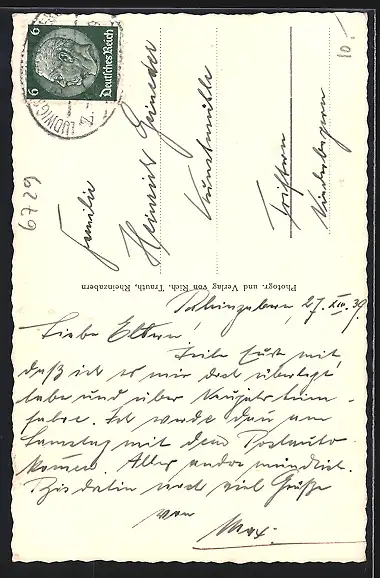 6
6
Deutsches Reich
LUDWIG
10.-
6729
Familie
Heinrich
Kunstmühle
Triftern
Niederbayern
Photogr. und Verlag von Rich. Trauth, Rheinzabern
Rheinzabern, 27. XII. 39.
Liebe Eltern!
Teile Euch mit,
daß ich es mir doch überlegt
habe und über Neujahr heim-
fahre. Ich werde dann am
Samstag mit dem Postauto
kommen. Alles andre mündlich.
Bis dahin noch viel Grüße
von
Max.